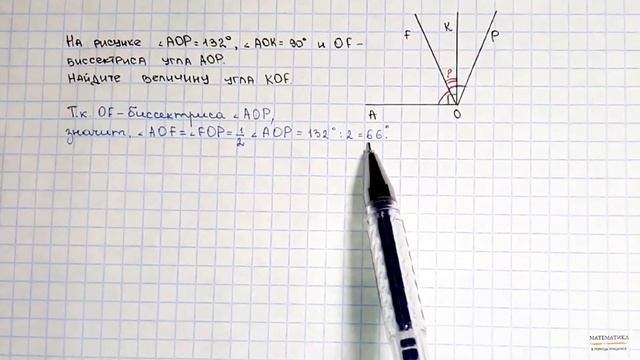 На рисунке ∠AOP=132°, ∠AOK=90° и OF-
биссектриса угла AOP.
Найдите величину угла KOF.
Т.к OF-биссектриса ∠AOP,
значит, ∠AOF=∠FOP=1/2 ∠AOP = 132° : 2 = 66°.
F
K
P
P
A
O
МАТЕМАТИКА